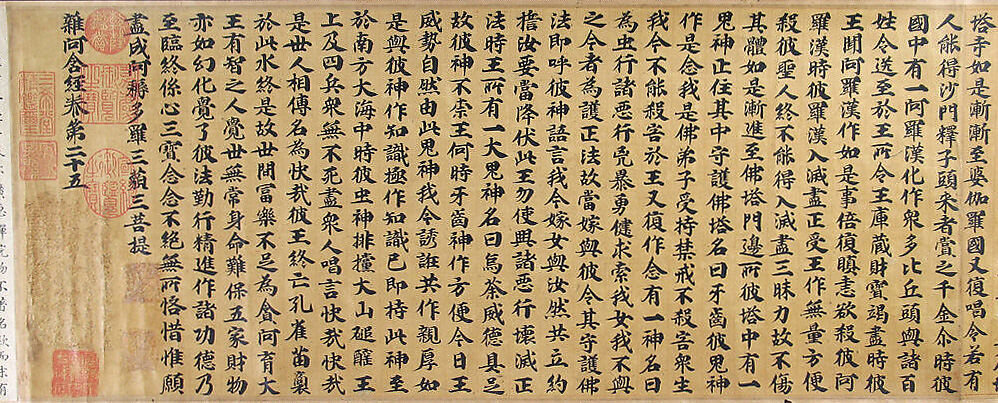 塔寺如是漸漸至婆伽羅國又復唱令若有
人能得沙門釋子頭來者賞之千金尒時彼
國中有一阿羅漢化作衆多比丘頭與諸百
姓令送至於王所令王庫藏財寶竭盡時彼
王聞阿羅漢作如是事倍復瞋恚欲殺彼阿
羅漢時彼羅漢入滅盡正受王作無量方便
殺彼聖人終不能得入滅盡三昧力故不傷
其體如是漸進至佛塔門邊所彼塔中有一
鬼神止住其中守護佛塔名曰牙齒彼鬼神
作是念我是佛弟子受持禁戒不殺害衆生
我今不能殺害於王又復作念有一神名曰
為虫行諸惡行兇暴勇健求索我女我不與
之今者為護正法故當嫁與彼令其守護佛
法即呼彼神語言我今嫁女與汝然共立約
擔汝要當降伏此王勿使興諸惡行壞滅正
法時王所有一大鬼神名曰烏荼威德具足
故彼神不柰王何時牙齒神作方便今日王
威勢自然由此鬼神我今誘誑共作親厚如
是與彼神作知識極作知識已即持此神至
於南方大海中時彼虫神排撞大山磓醢王
上及四兵衆無不死盡衆人唱言快哉快哉
是世人相傳名為快哉彼王終亡孔雀苗裔
於此永終是故世間富樂不足為貪阿育大
王有智之人覺世無常身命難保五家財物
亦如幻化覺了彼法勤行精進作諸功德乃
至臨終係心三寶念念不絕無所悋惜惟願
盡成阿耨多羅三藐三菩提
雜阿含經卷第二十五